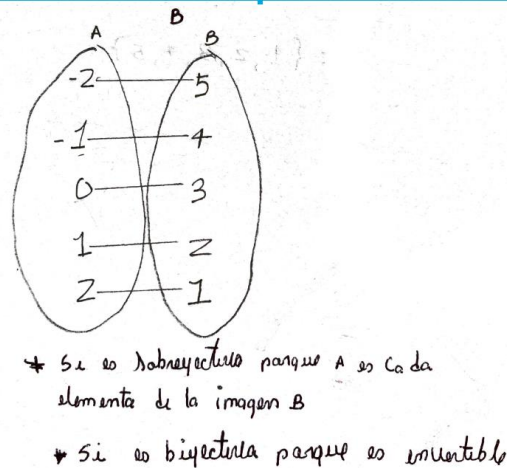 B
A B
-2 5
-1 4
0 3
1 2
2 1
* Si es sobreyectiva porque A es Cada
elemento de la imagen B
* Si es biyectiva porque es invertible